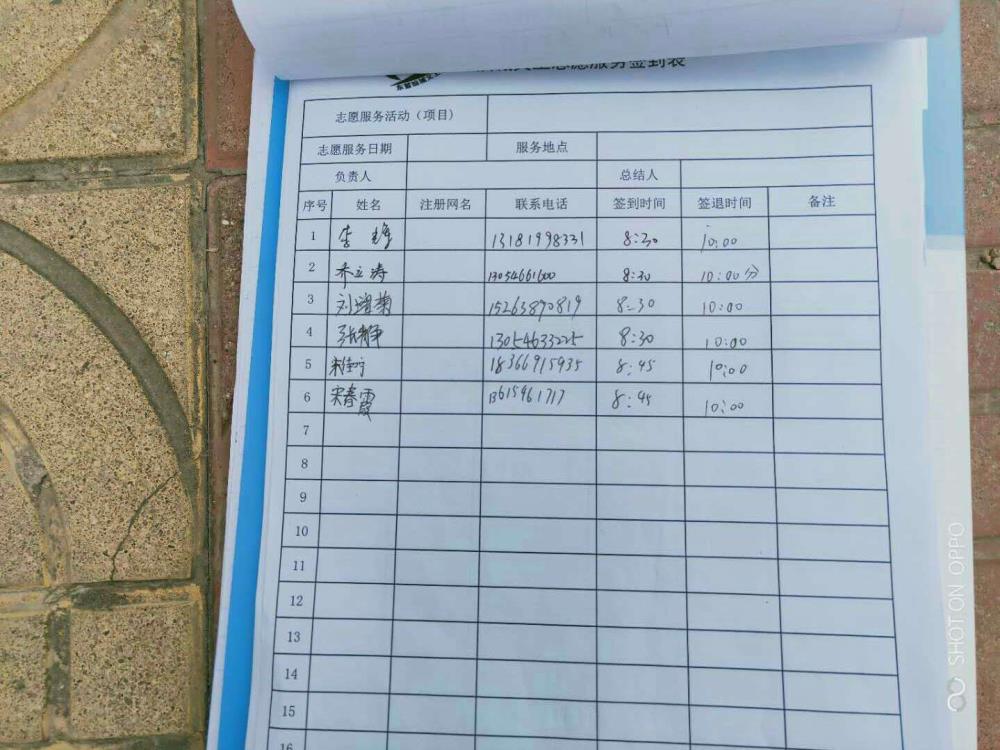 志愿服务签到表
志愿服务活动（项目）
志愿服务日期 服务地点
负责人 总结人
序号 姓名 注册网名 联系电话 签到时间 签退时间 备注
1 李 13181998331 8:30 10:00
2 乔立涛 13054661600 8:30 10:00分
3 刘增菊 15263890819 8:30 10:00
4 张静 13054633225 8:30 10:00
5 18366915935 8:45 10:00
6 宋春霞 13615461717 8:45 10:00
7
8
9
10
11
12
13
14
15
16
SHOT ON OPPO